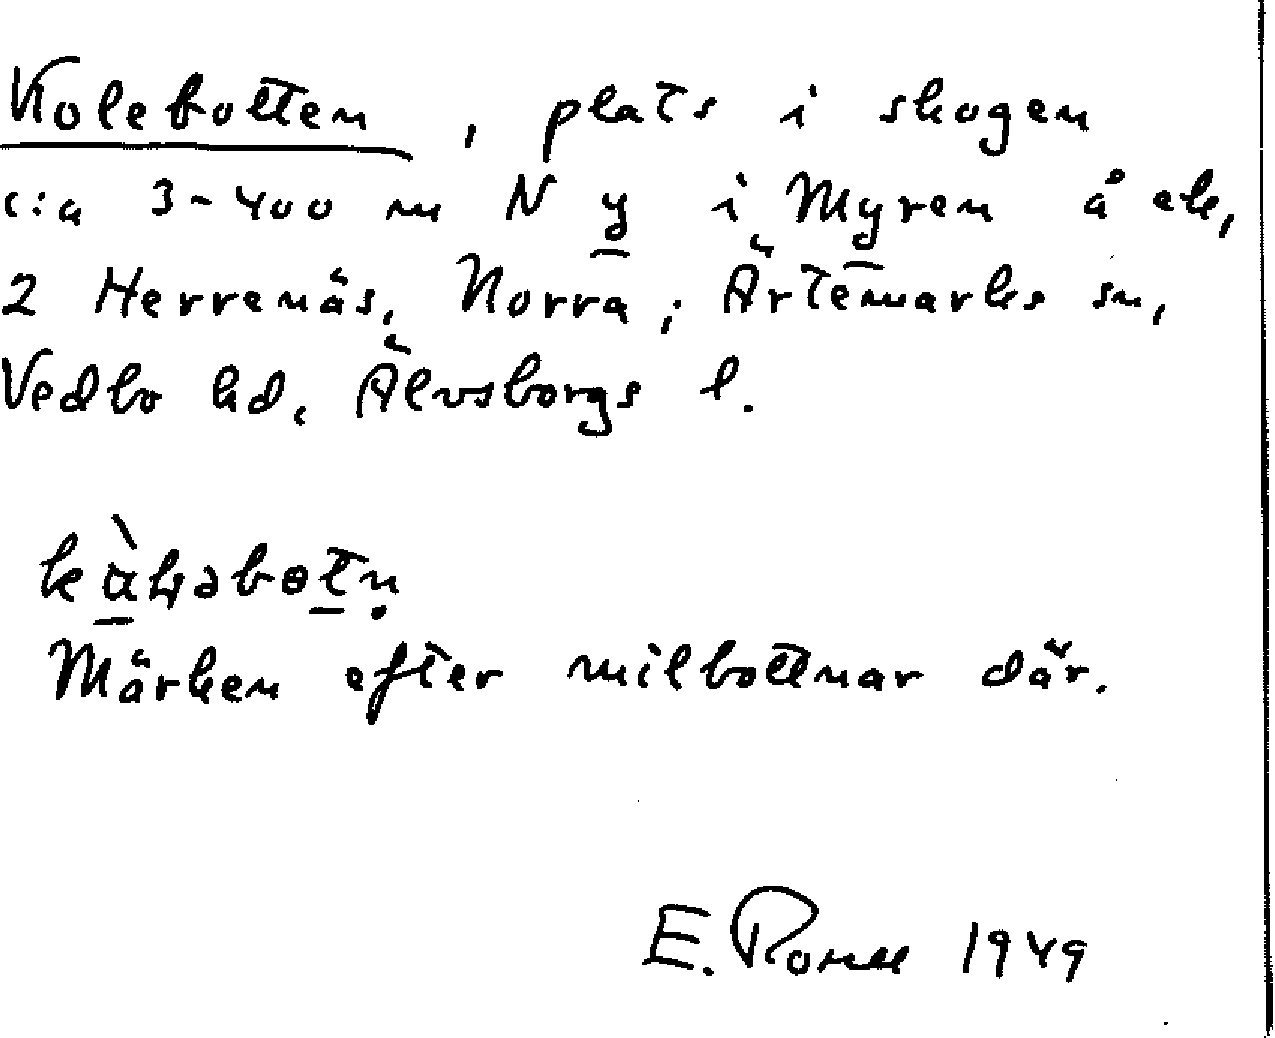 Kolebotten, plats i skogen
c:a 3-400 m N y i Myren å ek,
2 Herrenäs, Norra, Ärtemarks sn,
Vedbo hd, Älvsborgs l.
Märken efter milbottnar där.
E. 1949